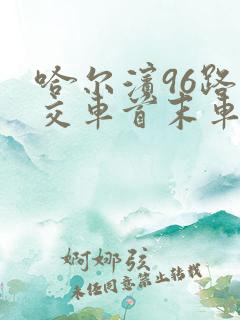 哈尔滨96路
交车首末车
婀娜弦
未经同意禁止转载